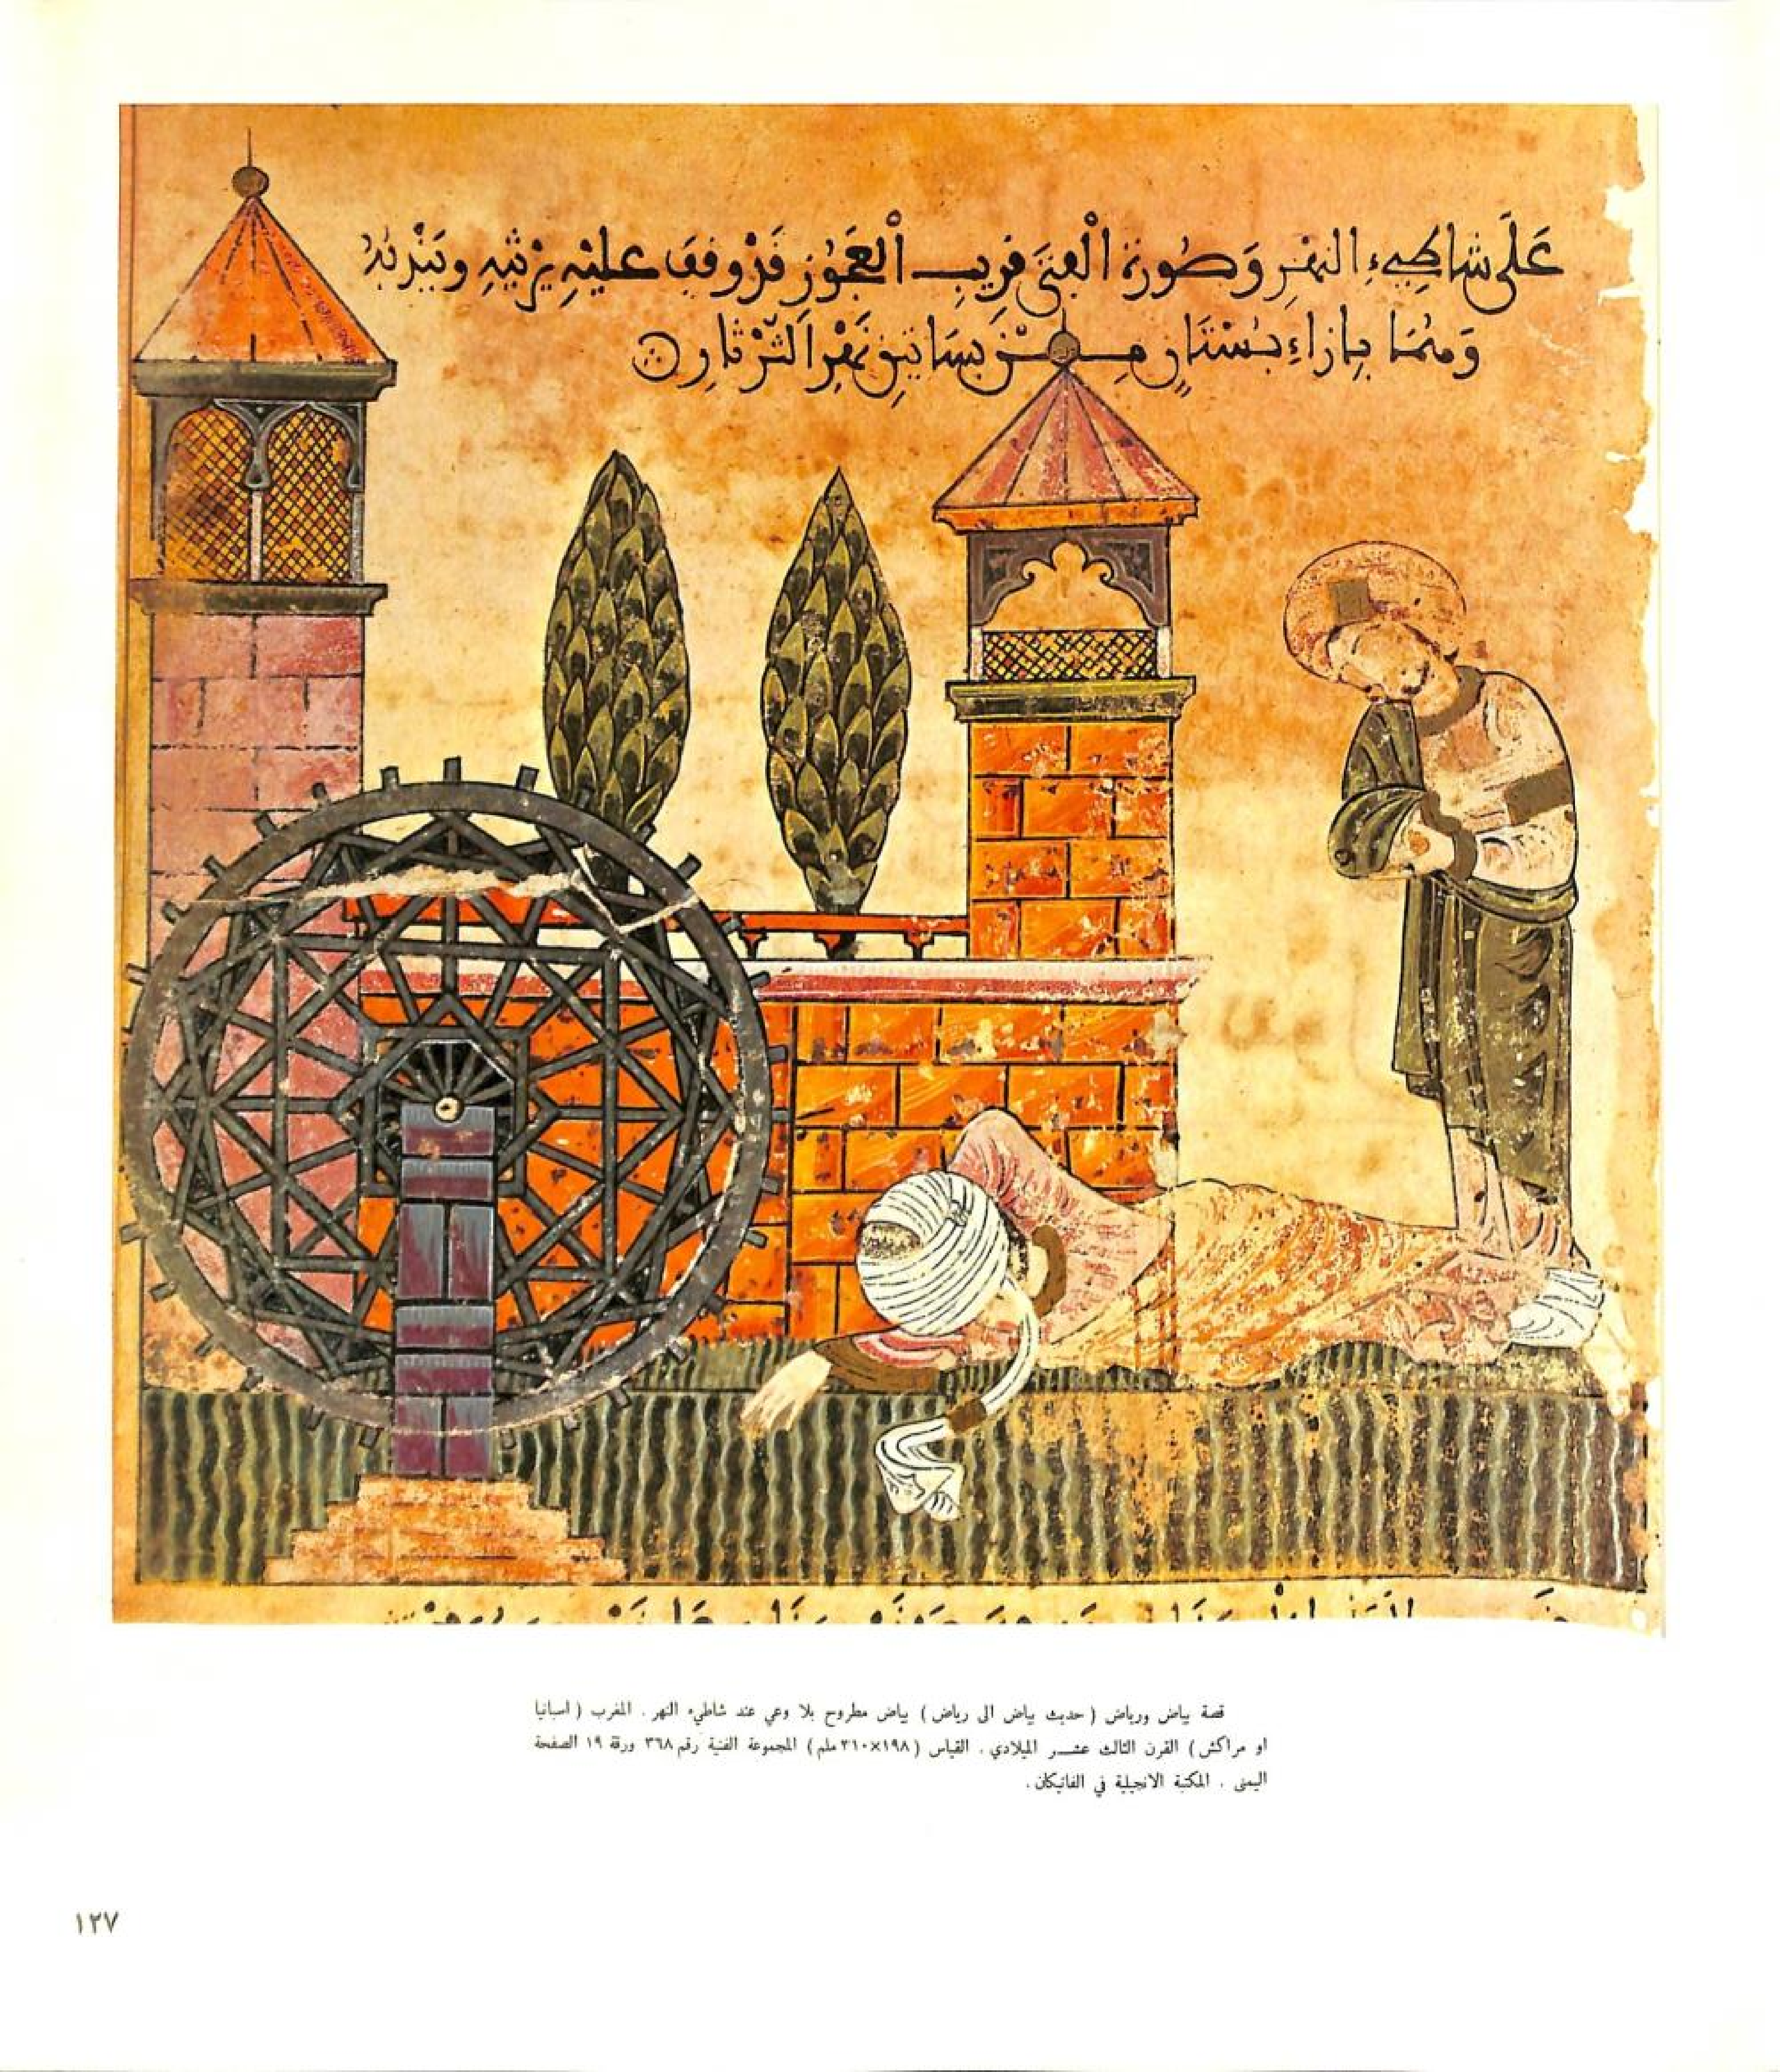 عَلَى شَاطِيءِ النهْرِ وَصُورَة الْفتَى قَرِيب الْعَجُوز قَدْ وقفَ عليْهِ يرْثيهِ ويَنْدبُهُ
وَهُمَا بِإزاءِ بُسْتَانٍ مِنْ بسَاتينِ نَهْرِ الثّرْثارِ
قصة بياض ورياض ( حديث بياض الى رياض ) بياض مطروح بلا وعي عند شاطيء النهر . المغرب ( اسبانيا
او مراكش ) القرن الثالث عشر الميلادي . القياس ( ١٩٨×٢١٠ ملم ) المجموعة الفنية رقم ٣٦٨ ورقة ١٩ الصفحة
اليمنى . المكتبة الانجيلية في الفاتيكان .
١٢٧